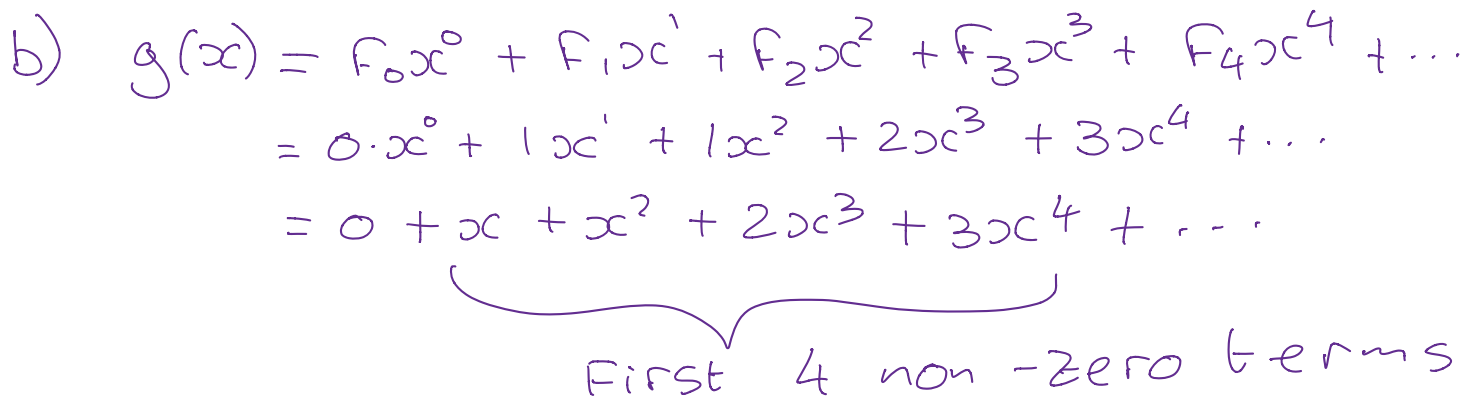 b) g(x) = F₀x⁰ + F₁x¹ + F₂x² + F₃x³ + F₄x⁴ + ...
= 0·x⁰ + 1x¹ + 1x² + 2x³ + 3x⁴ + ...
= 0 + x + x² + 2x³ + 3x⁴ + ...
First 4 non-zero terms